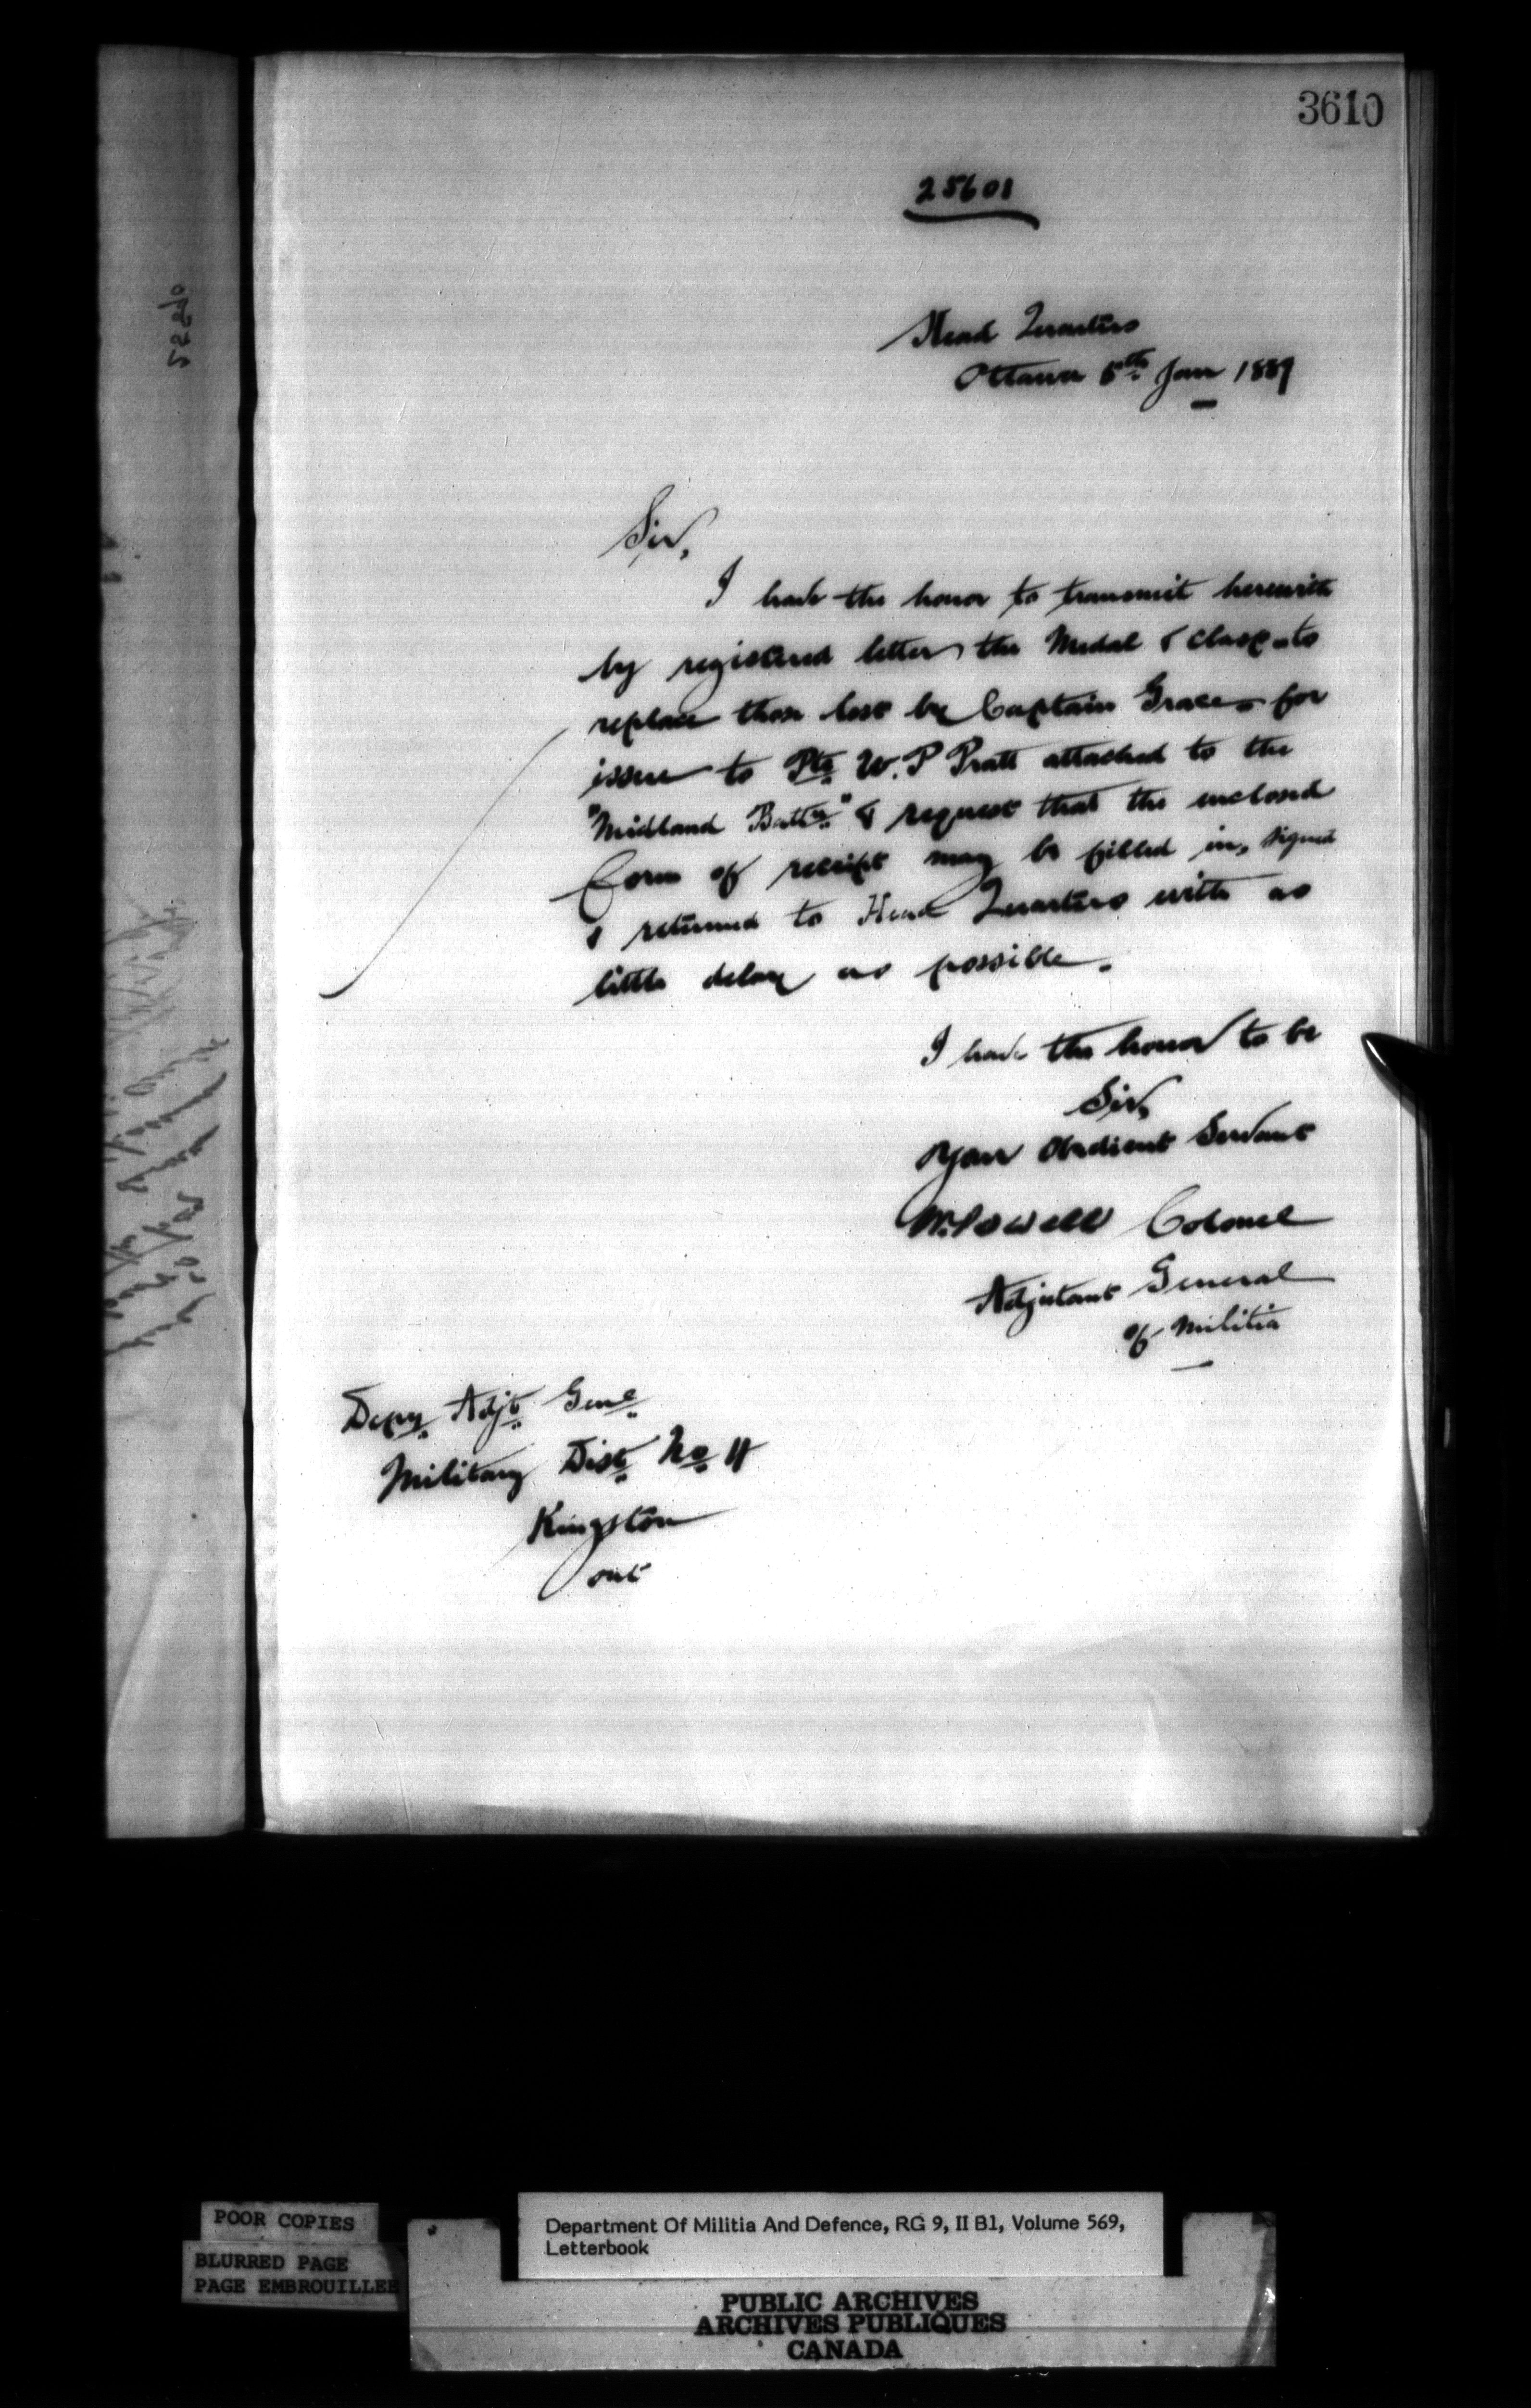 3610
25601
Head Quarters
Ottawa 5th Jan 1889
Sir,
I have the honor to transmit herewith
by registered letter the Medal & clasp to
replace those lost by Captain Grace for
issue to Pte W. P Pratt attached to the
"Midland Battn" & request that the enclosed
form of receipt may be filled in, signed
& returned to Head Quarters with as
little delay as possible.
I have the honor to be
Sir,
Your Obedient Servant
W. Powell Colonel
Adjutant General
of Militia
Depy Adjt Genl
Military Dist No 4
Kingston
Ont
POOR COPIES
BLURRED PAGE
PAGE EMBROUILLEE
Department Of Militia And Defence, RG 9, II B1, Volume 569,
Letterbook
PUBLIC ARCHIVES
ARCHIVES PUBLIQUES
CANADA